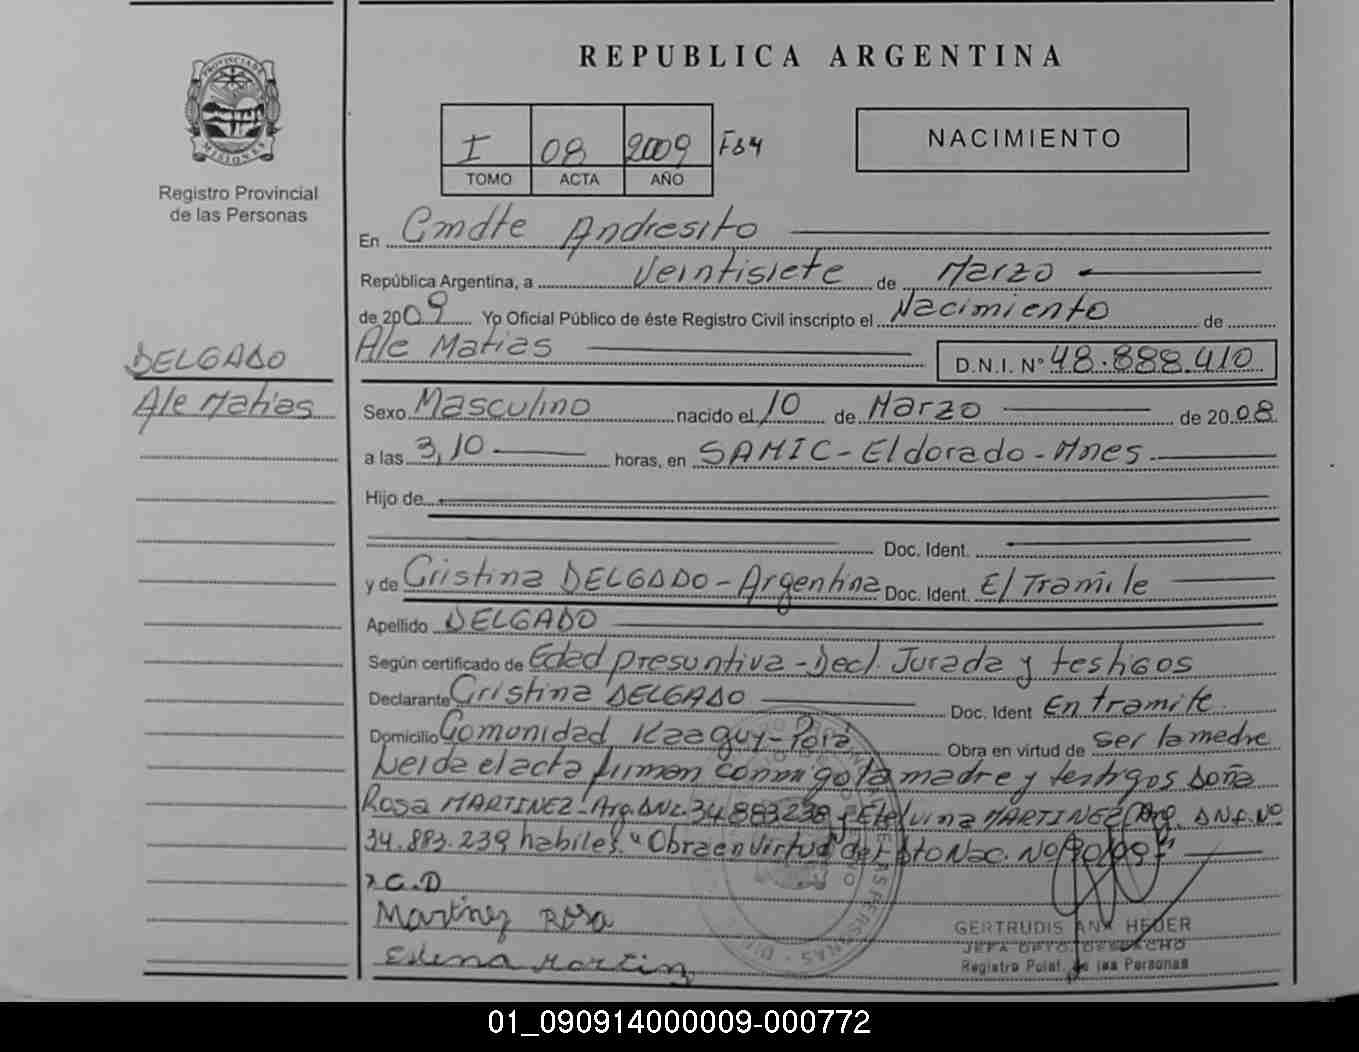 REPUBLICA ARGENTINA
PROVINCIA DE
MISIONES
Registro Provincial
de las Personas
I 08 2009 Fs4
TOMO ACTA AÑO
NACIMIENTO
En Cmdte Andresito
República Argentina, a Veintisiete de Marzo
de 2009 Yo Oficial Público de éste Registro Civil inscripto el Nacimiento de
Ale Matias D.N.I. Nº 48.888.410
DELGADO
Ale Matias
Sexo Masculino nacido el 10 de Marzo de 2008
a las 3,10 horas, en SAMIC - Eldorado - Mnes.
Hijo de
Doc. Ident.
y de Cristina DELGADO - Argentina Doc. Ident. El Tramite
Apellido DELGADO
Según certificado de Edad presuntiva - Decl. Jurada y testigos
Declarante Cristina DELGADO Doc. Ident En tramite
Domicilio Comunidad Kaaguy - Porá Obra en virtud de ser la madre
Leida el acta firman conmigo la madre y testigos Doña
Rosa MARTINEZ - Arg. DNI. 34.883.238 y Etelvina MARTINEZ Arg. DNI. Nº
34.883.239 habiles. "Obra en Virtud del Dto Nac. Nº 90/09"
C.D
Martinez Rosa
GERTRUDIS ANA HEDER
JEFA DPTO. DESPACHO
Registro Pcial. de las Personas
01_090914000009-000772